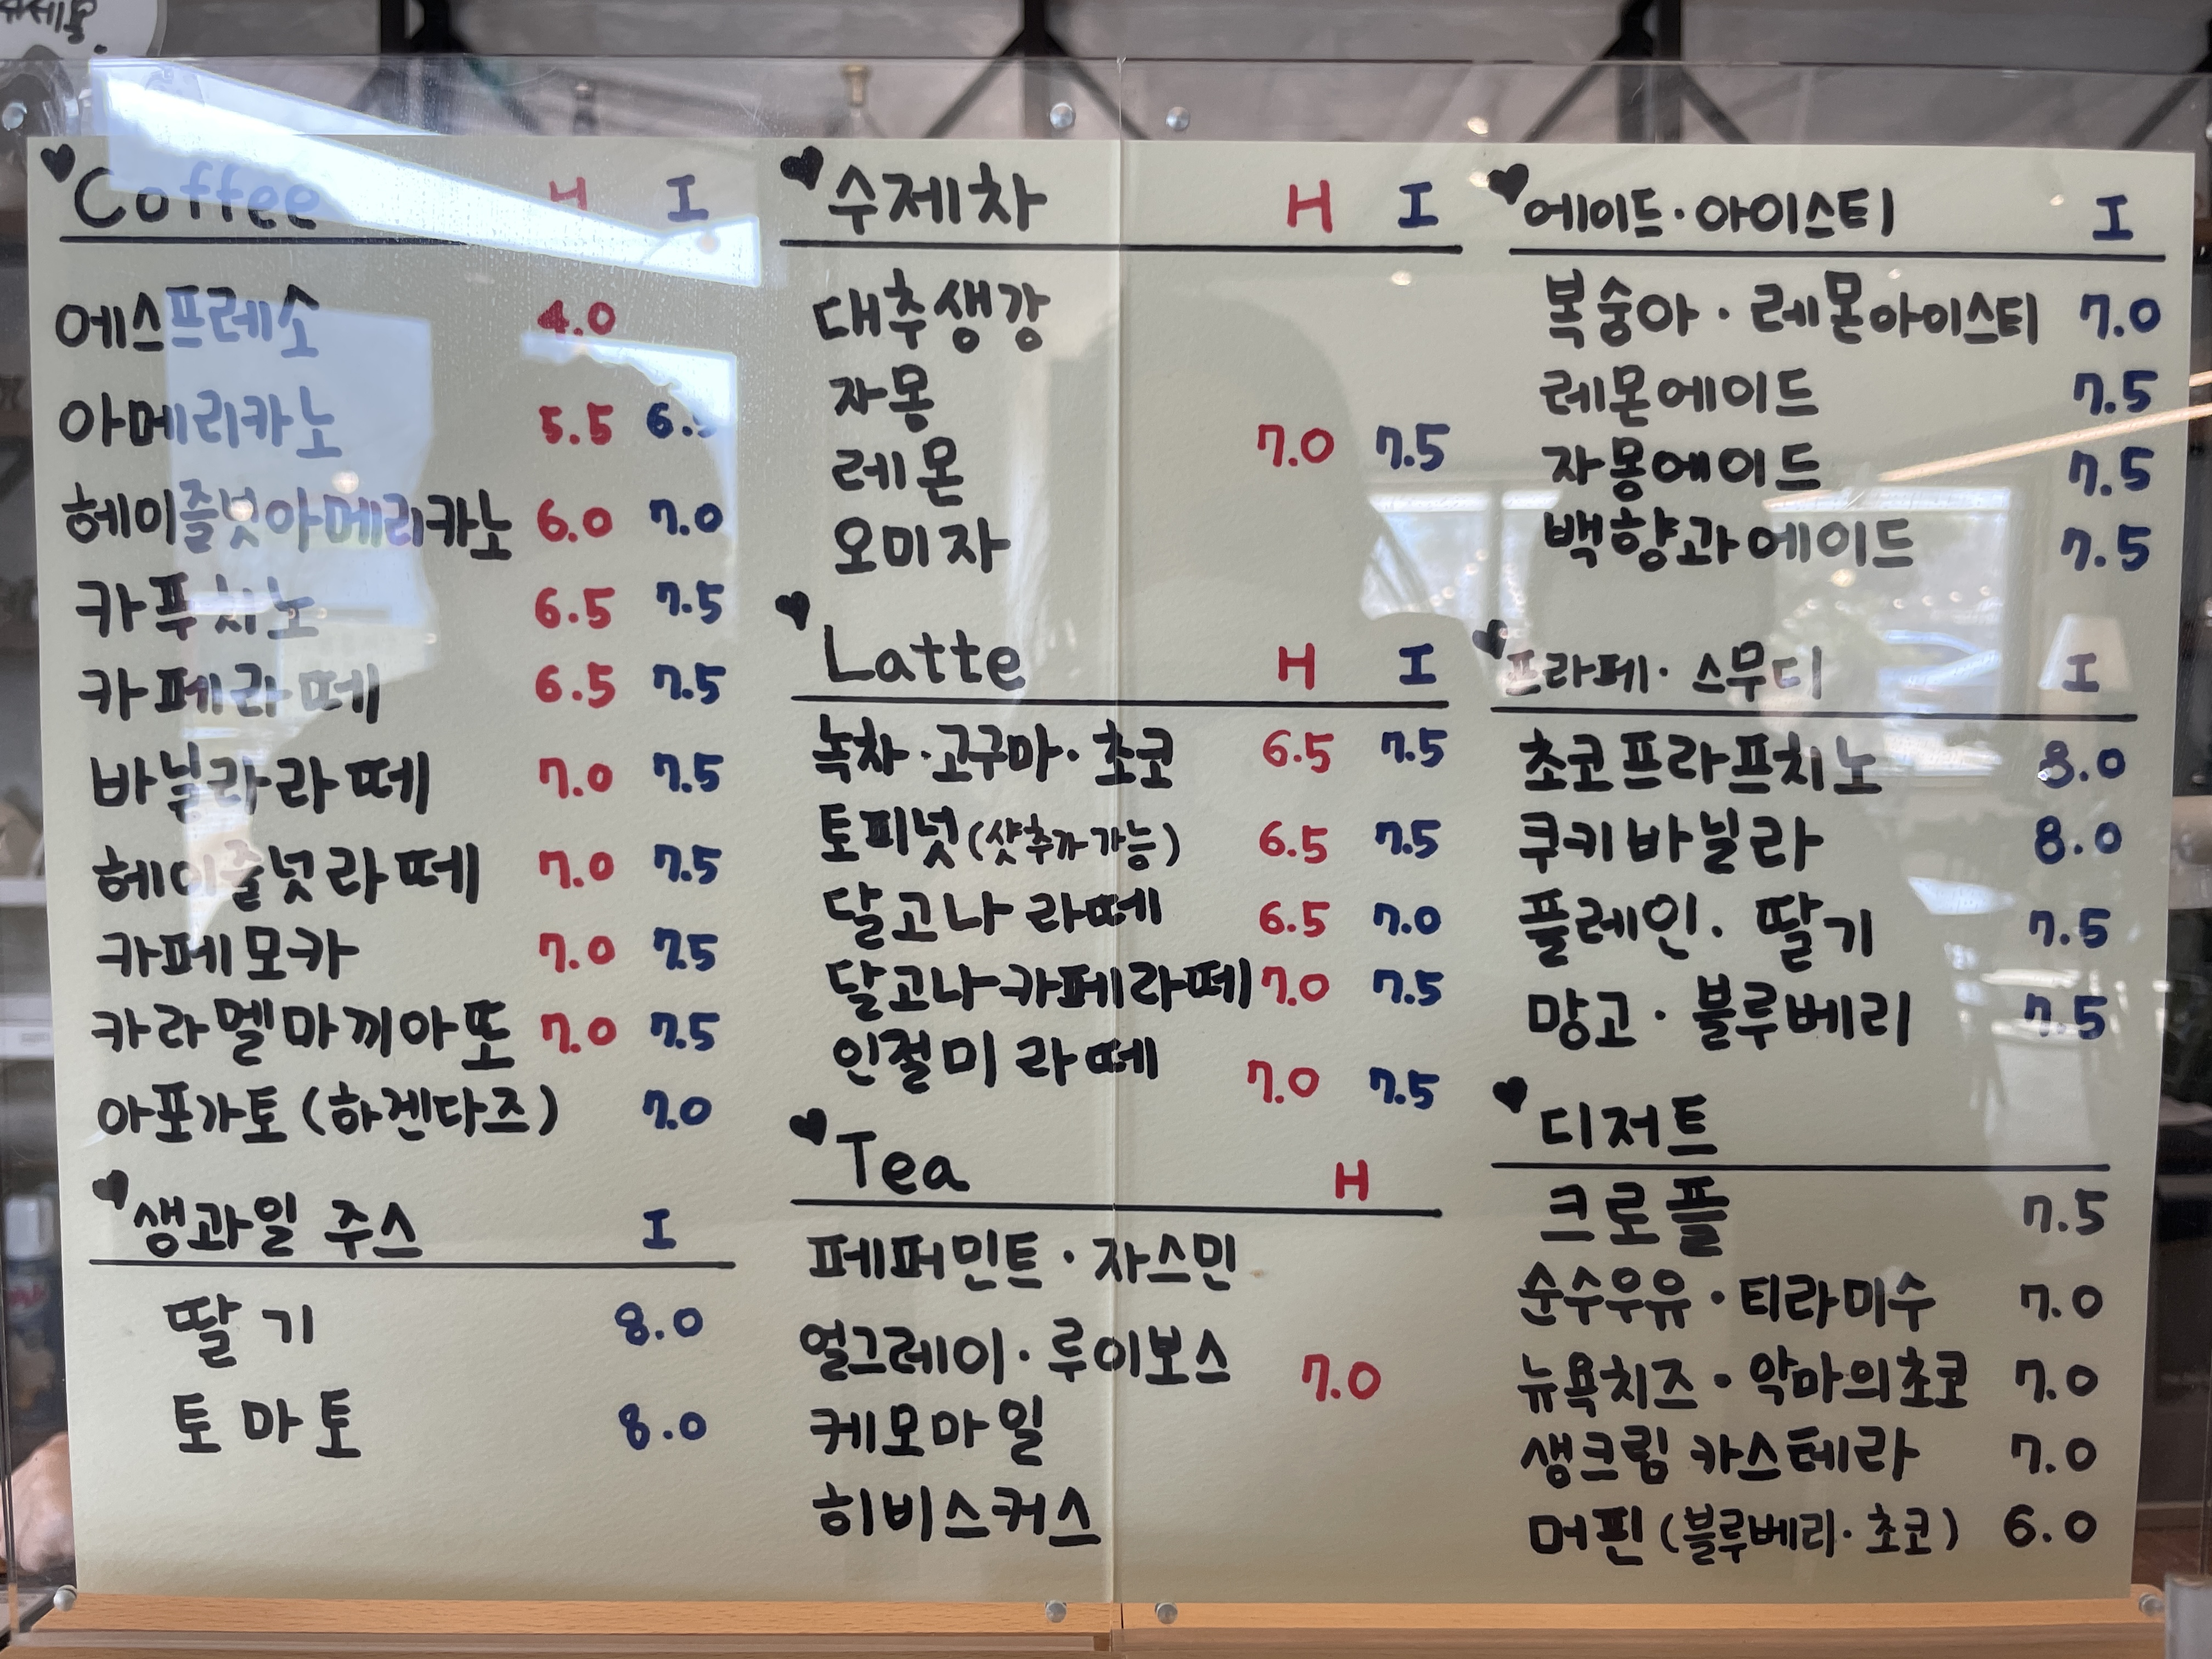 ♥Coffee H I
에스프레소 4.0
아메리카노 5.5
헤이즐넛아메리카노 6.0 7.0
카푸치노 6.5 7.5
카페라떼 6.5 7.5
바닐라라떼 7.0 7.5
헤이즐넛라떼 7.0 7.5
카페모카 7.0 7.5
카라멜마끼아또 7.0 7.5
아포가토 (하겐다즈) 7.0
♥생과일 주스 I
딸기 8.0
토마토 8.0
♥수제차 H I
대추생강
자몽
레몬 7.0 7.5
오미자
♥Latte H I
녹차·고구마·초코 6.5 7.5
토피넛(샷추가가능) 6.5 7.5
달고나 라떼 6.5 7.0
달고나카페라떼 7.0 7.5
인절미 라떼 7.0 7.5
♥Tea H
페퍼민트·자스민
얼그레이·루이보스 7.0
케모마일
히비스커스
♥에이드·아이스티 I
복숭아·레몬아이스티 7.0
레몬에이드 7.5
자몽에이드 7.5
백향과에이드 7.5
♥프라페·스무디 I
초코프라프치노 8.0
쿠키바닐라 8.0
플레인·딸기 7.5
망고·블루베리 7.5
♥디저트
크로플 7.5
순수우유·티라미수 7.0
뉴욕치즈·악마의초코 7.0
생크림 카스테라 7.0
머핀 (블루베리·초코) 6.0